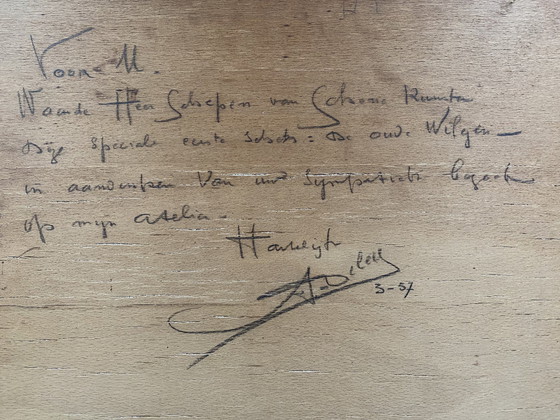 Voor M.
Waarde Heer Schepen van Schoone Kunsten
Deze speciale eerste schets: De oude Wilgen —
in aandenken van uw sympathiek bezoek
op mijn atelier.
Hartelijk
3-57